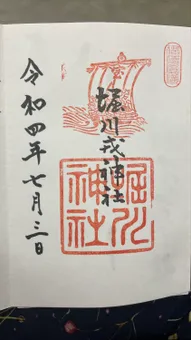 堀川戎神社
堀川
神社
令和四年七月三日